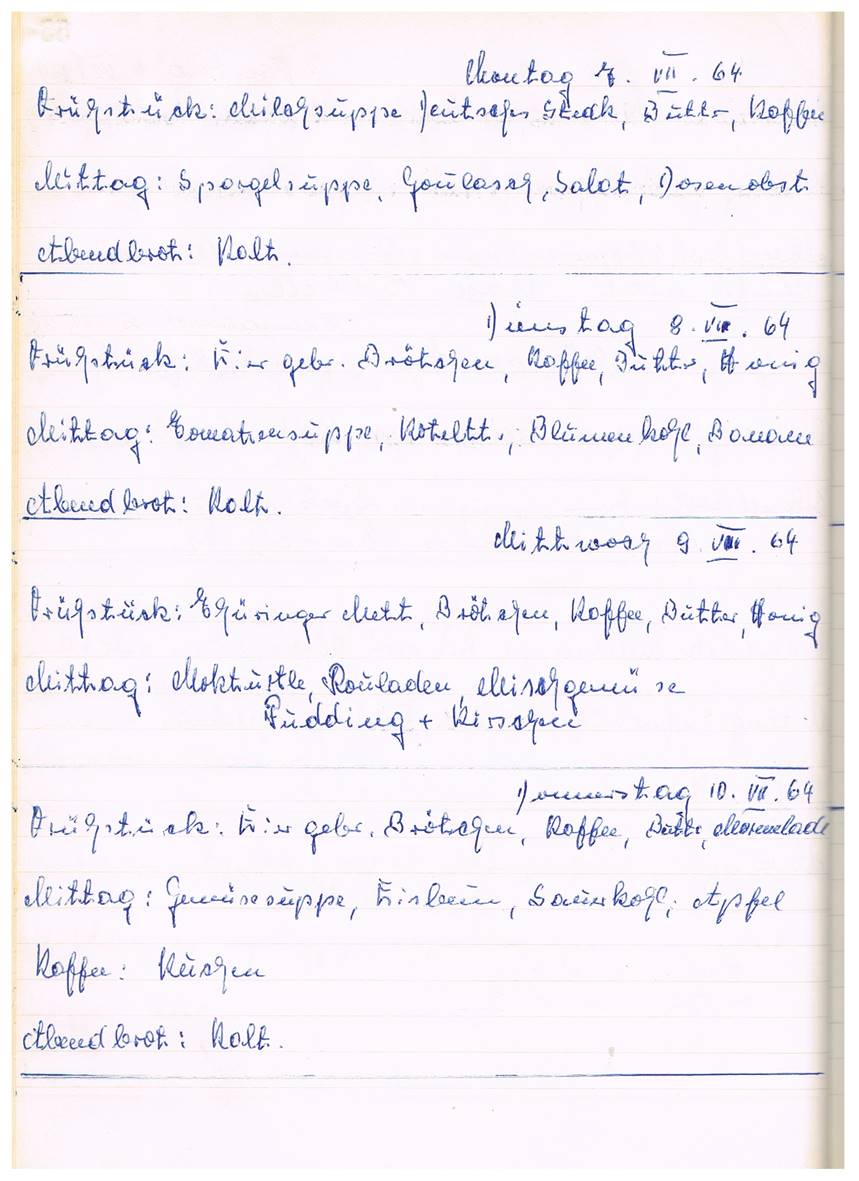 Montag 7. VII. 64
Frühstück: Milchsuppe Deutsches Steak, Butter, Kaffee
Mittag: Spargelsuppe, Goulasch, Salat, Dosenobst
Abendbrot: Kalt.
Dienstag 8. VII. 64
Frühstück: Eier gebr. Brötchen, Kaffee, Butter, Honig
Mittag: Tomatensuppe, Kotelett, Blumenkohl, Banane
Abendbrot: Kalt.
Mittwoch 9. VII. 64
Frühstück: Thüringer Mett, Brötchen, Kaffee, Butter, Honig
Mittag: Mokturtle, Rouladen, Mischgemüse
Pudding + Kirschen
Donnerstag 10. VII. 64
Frühstück: Eier gebr. Brötchen, Kaffee, Butter, Marmelade
Mittag: Gemüsesuppe, Eisbein, Sauerkohl, Apfel
Kaffee: Kuchen
Abendbrot: Kalt.